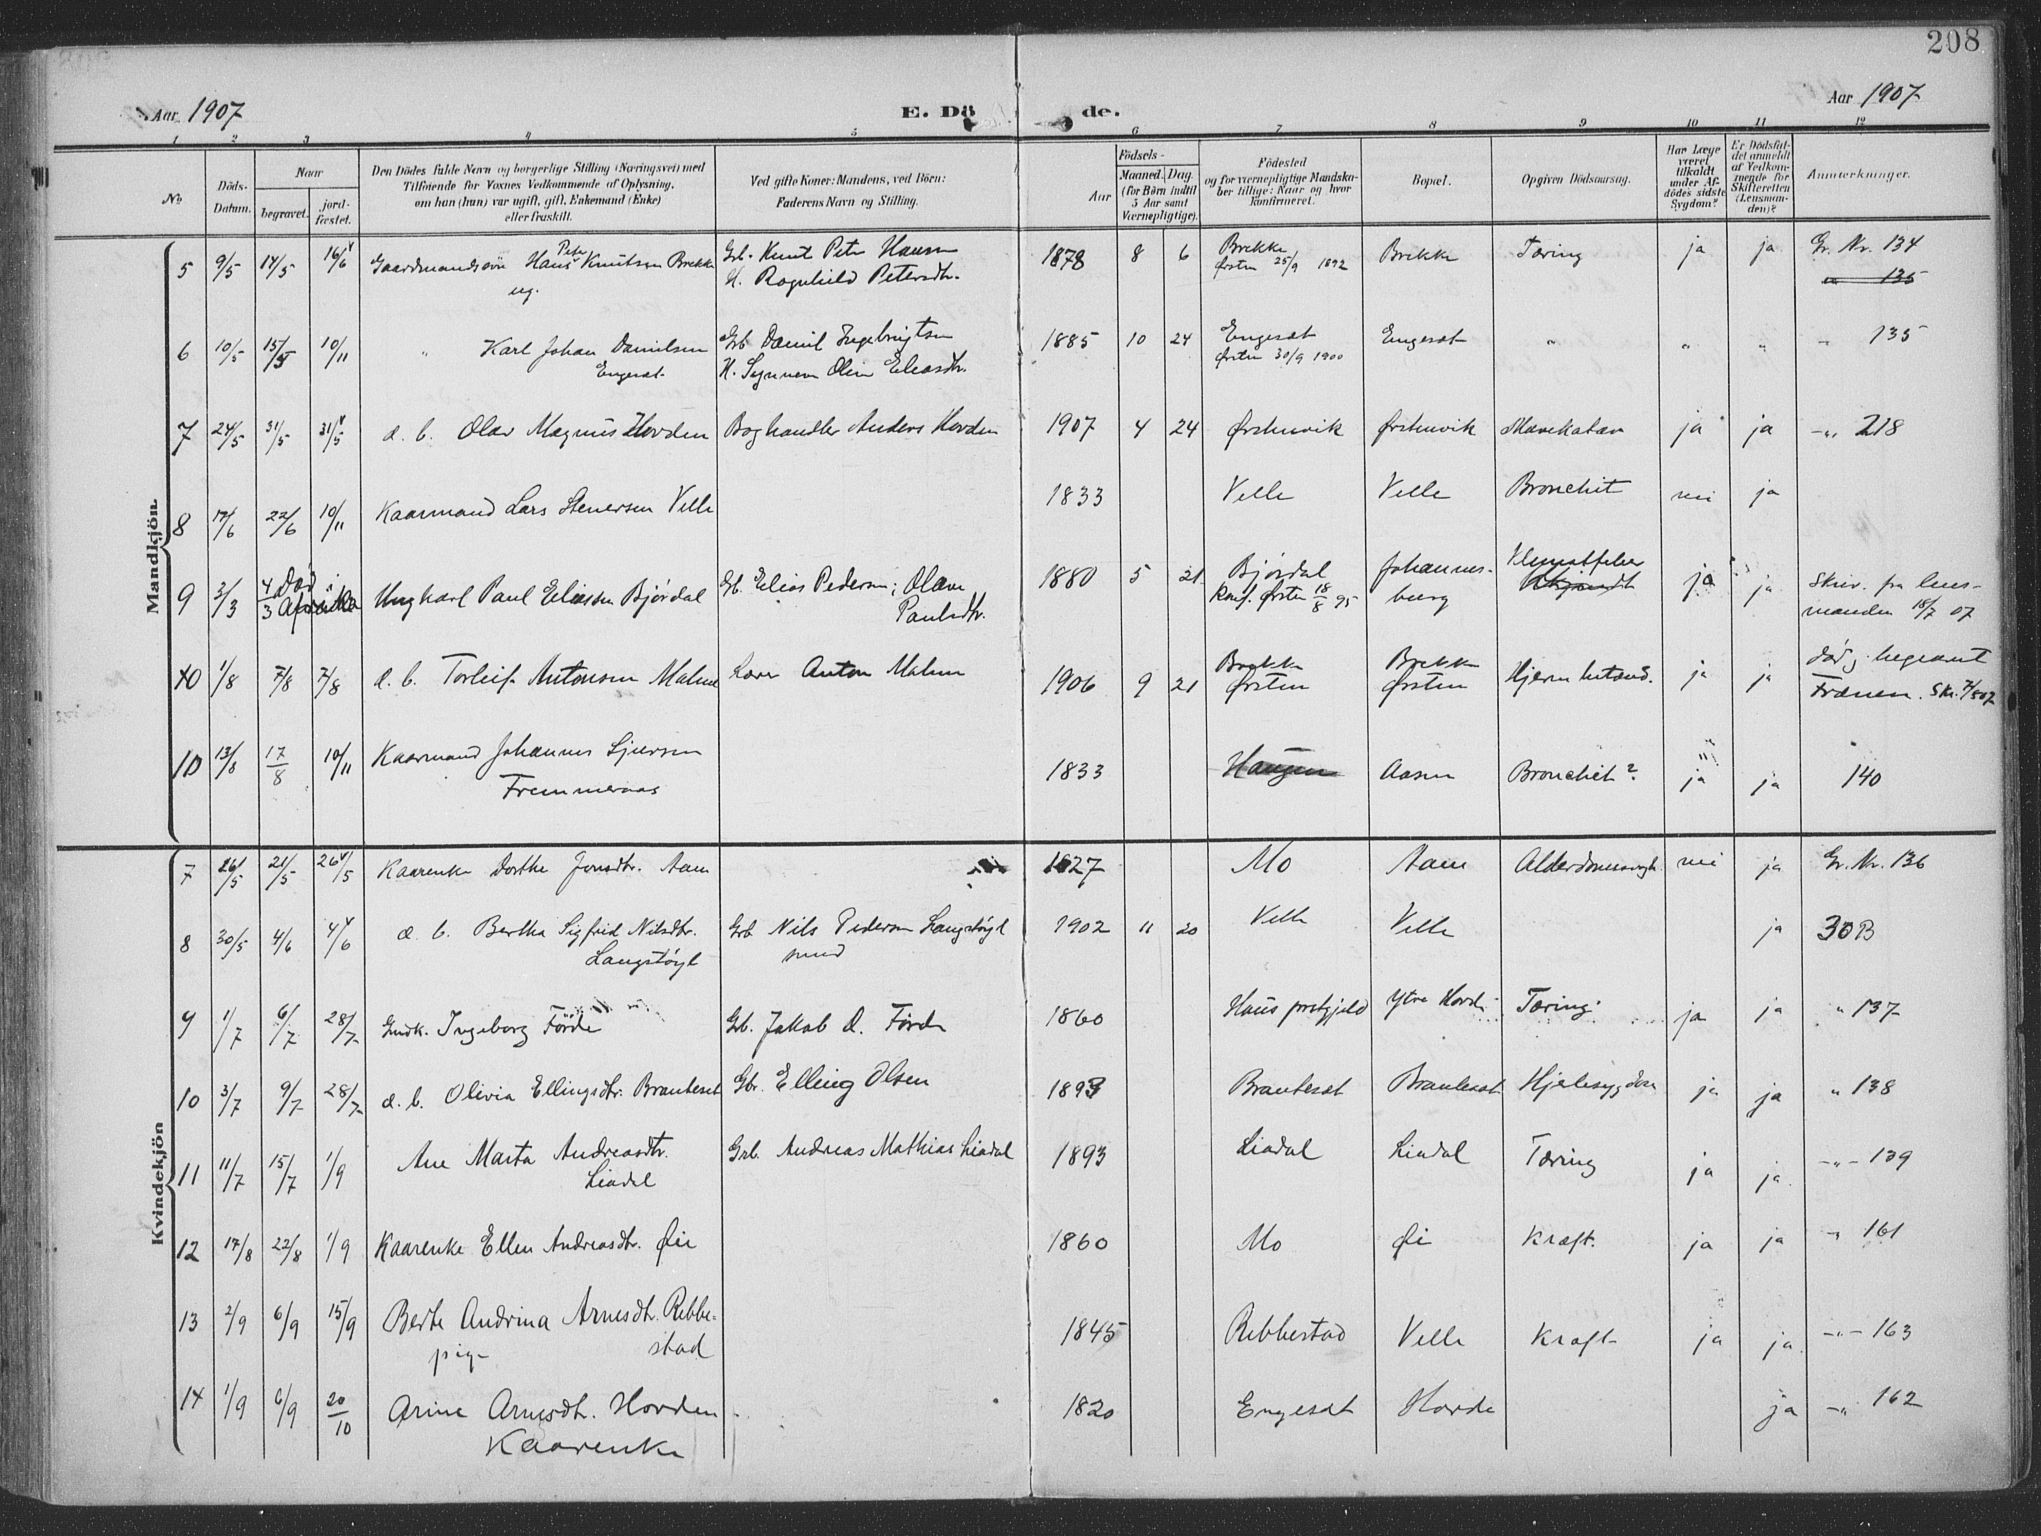 208
Aar 1907
E. Dö de.
Aar 1907
1 2 3 4 5 6 7 8 9 10 11 12
No
Döds-Datum.
Naar
begravet.
jord-fæstet.
Den Dödes fulde Navn og borgerlige Stilling (Næringsvei) med
Tilföiende for Voxnes Vedkommende af Oplysning,
om han (hun) var ugift, gift, Enkemand (Enke)
eller fraskilt.
Ved gifte Koner: Mandens, ved Börn:
Faderens Navn og Stilling.
Aar
Födsels-
Maaned. Dag.
(for Börn indtil
5 Aar samt
Værnepligtige).
Födested
og for værnepligtige Mandska-
ber tillige: Naar og hvor
konfirmeret.
Bopæl.
Opgiven Dödsaarsag.
Har Læge
været
tilkaldt
under Af-
dödes sidste
Sygdom?
Er Dödsfal-
det anmeldt
af Vedkom-
mende for
Skifteretten
(Lensman-
den)?
Anmærkninger.
Mandkjön.
5 9/5 14/5 16/6 Gaardmandssøn Hans Peter Knutsen Brekke Grb. Knut Peter Hansen 1878 8 6 Brekke Brekke Tæring ja ja Gr. Nr. 134
ug. H. Ragnhild Petersdtr. Ørsten 25/9 1892 " 135
6 10/5 15/5 10/11 " Karl Johan Danielsen Grb Daniel Ingebrigtsen 1885 10 24 Engeset Engeset " " " " 135
Engeset H. Synneva Oline Eliasdtr. Ørsten 30/9 1900
7 24/5 31/5 31/5 d. b. Olav Magnus Hovden Boghandler Anders Hovden 1907 4 24 Ørstenvik Ørstenvik Mavekatar ja ja -"- 218
8 17/6 22/6 10/11 Kaarmand Lars Stenersen Velle 1833 Velle Velle Bronchit nei ja
9 3/3 4/3 Død i Afrika Ungkarl Paul Eliassen Bjørdal Gb. Elias Pedersen; Olave Paulsdtr. 1880 5 21 Bjørdal Johannes-
burg Klimatfeber ja ja Skriv. fra lens-
Konf. Ørsten 18/8 95 manden 18/7 07
10 1/8 7/8 7/8 d. b. Torleif Antonsen Malme Lærer Anton Malme 1906 9 21 Brekke Brekke Hjernebetænd. ja ja død j. begravet
Ørsten Ørsten Frænen. Skr. 7/8 07
10 13/8 17/8 10/11 Kaarmand Johannes Sjursen 1833 Haugen Aasen Bronchit? ja ja 140
Fremmeraas
Kvindekjön
7 26/5 21/5 26/5 Kaarenke Dorthe Jonsdtr. Aam 1827 Mo Aam Alderdomssvagh. nei ja Gr. Nr. 136
8 30/5 4/6 4/6 d. b. Bertha Sigfrid Nilsdtr. Grb Nils Pedersen Langstøyl 1902 11 20 Velle Velle ja 30B
Langstøyl
9 1/7 6/7 28/7 Gmdk. Ingeborg Førde Gb. Jakob A. Førde 1860 Haus prestgjeld Ytre Hovde Tæring ja ja " 137
10 3/7 9/7 28/7 d. b. Olivia Ellingsdtr. Brauteset Gbr. Elling Olsen 1893 Brauteset Brauteset Hjertesygdom ja ja " 138
11 11/7 15/7 1/9 Ane Marta Andreasdtr. Grb. Andreas Mathias Liadal 1893 Liadal Liadal Tæring ja ja -"- 139
Liadal
12 17/8 22/8 1/9 Kaarenke Ellen Andreasdtr. Øie 1860 Mo Øie Kræft. ja ja " 161
13 2/9 6/9 15/9 Berte Andrina Arnesdtr. Ribbe- 1845 Ribbestad Velle Kræft ja ja -"- 163
pige stad
14 1/9 6/9 20/10 Arine Arnesdtr. Hovden 1820 Engeset Hovde ja -"- 162
Kaarenke